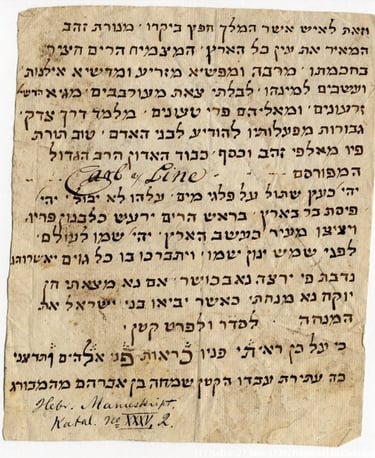 וזאת לאיש אשר המלך חפץ ביקרו׳ מנורת זהב
המאיר את עין כל הארץ׳ המצמיח הרים חציר׳
בחכמתו׳ מרבה ומפשיא מזריע ומדשיא אילנות
ועשבים למינהו׳ לבלתי צאת מעורבבים׳ מגיא
זרעונים׳ ומאליהם פרי טעונים׳ מלמד דרך צדק׳
גבורות מפעלותיו להודיע לבני האדם׳ טוב תורת
פיו מאלפי זהב וכסף׳ כבוד האדון הרב הגדול
המפורסם Carl Line
יהי׳ כעץ שתול על פלגי מים׳ עלהו לא יבול׳ יהי׳
פיסת בר בארץ׳ בראש הרים ירעש כלבנון פריו׳
ויציצו מעיר כעשב הארץ׳ יהי׳ שמו לעולם׳
לפני שמש ינון שמו׳ ויתברכו בו כל גוים יאשרוהו
נדבת פי ירצה נא בכושר׳ אם נא מצאתי חן
יוקח נא מנחתי כאשר יביאו בני ישראל את
המנחה לסדר ולפרט קטן׳
כי על כן ראיתי פניו כראות פני אלהים ותרצני
כה עתירת עבדו הקטן שמחה בן אברהם מהמבורג
Hebr. Manuskript.
Katal. No XXXV, 2.